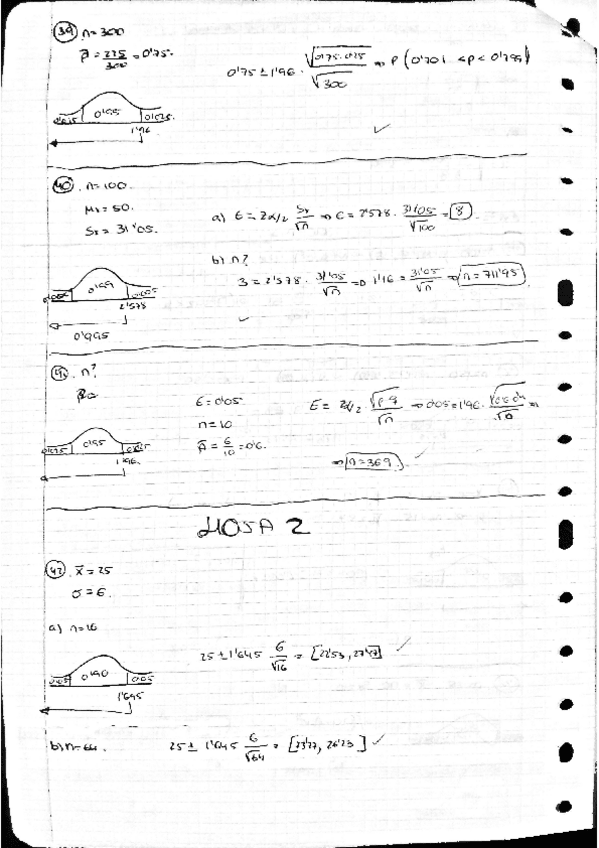 39 n=300
p̂ = 225/300 = 0'75.
0'75 ± 1'96 · √(0'75·0'25)/√300 ⇒ P(0'701 < p < 0'799)
0'025 0'95 0'025
1'96
✓
40. n=100
= 50.
= 31'05.
a) E = Zα/2 /√n ⇒ E = 2'578 · 31'05/√100 = 8
b) n?
3 = 2'578 · 31'05/√n ⇒ 1'16 = 31'05/√n ⇒ n = 711'95
0'99 0'005
2'578
0'995
✓
n?
E = 0'05
n = 10
p̂ = 6/10 = 0'6.
E = Zα/2 · √p·q/√n ⇒ 0'05 = 1'96 · √n ⇒
⇒ n = 369
0'025 0'95 0'025
1'96
✓
HOJA 2
42. x̄ = 25
σ = 6.
a) n=16
25 ± 1'645 6/√16 = [22'53, 27'47] ✓
0'05 0'90 0'05
1'645
b) n=64. 25 ± 1'645 6/√64 = [23'77, 26'23] ✓